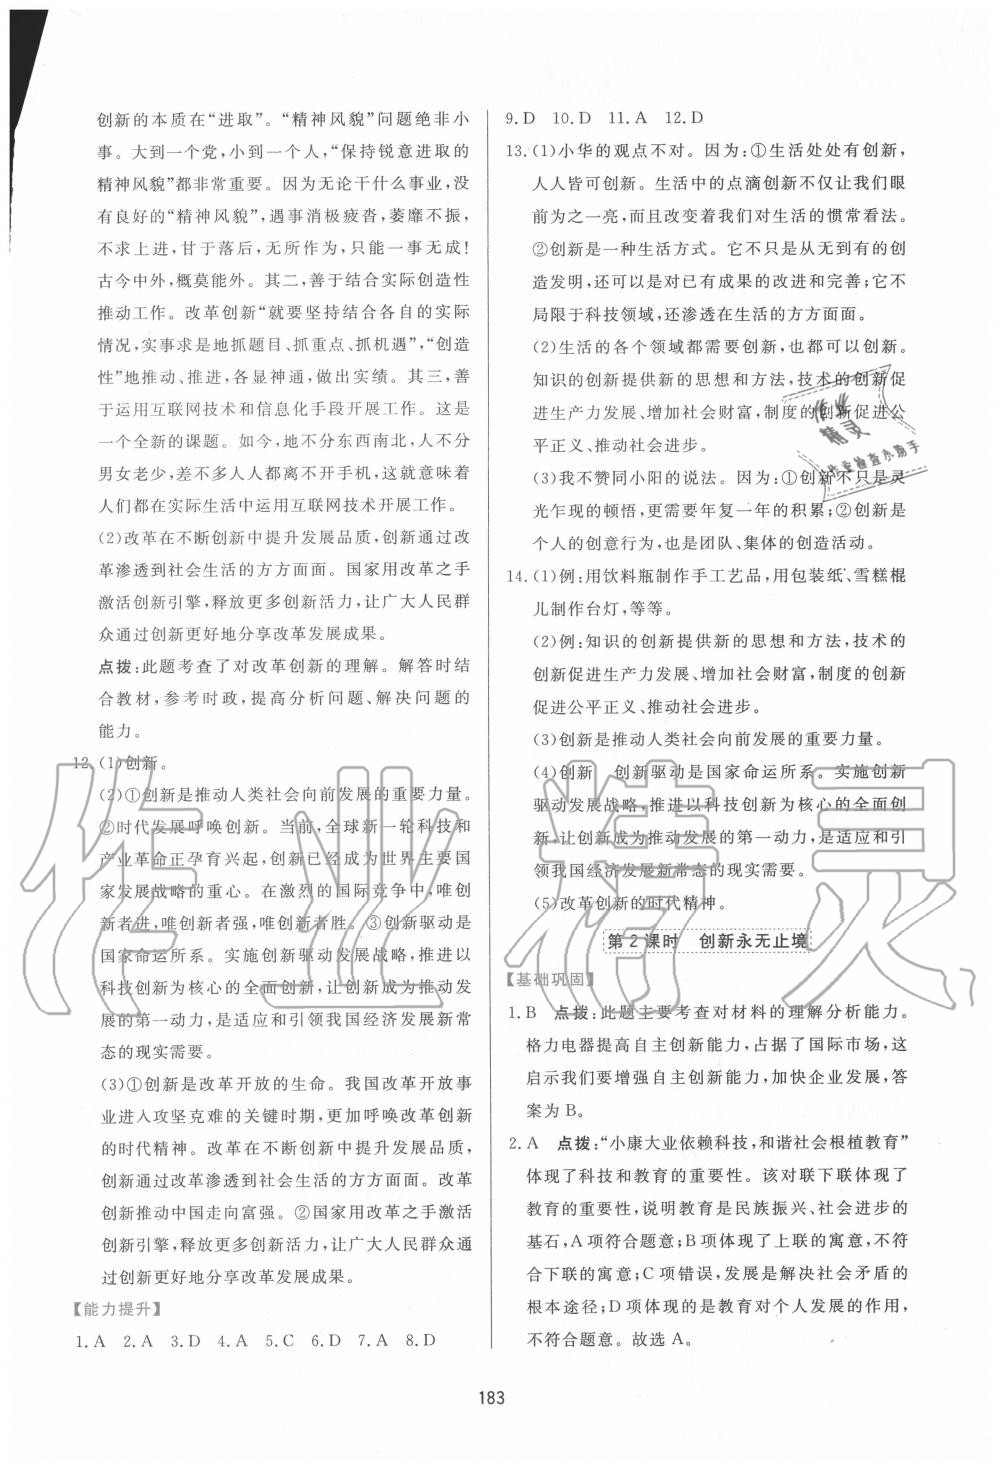 创新的本质在“进取”。“精神风貌”问题绝非小
事。大到一个党,小到一个人,“保持锐意进取的
精神风貌”都非常重要。因为无论干什么事业,没
有良好的“精神风貌”,遇事消极疲沓,萎靡不振,
不求上进,甘于落后,无所作为,只能一事无成!
古今中外,概莫能外。其二,善于结合实际创造性
推动工作。改革创新“就要坚持结合各自的实际
情况,实事求是地抓题目、抓重点、抓机遇”,“创造
性”地推动、推进,各显神通,做出实绩。其三,善
于运用互联网技术和信息化手段开展工作。这是
一个全新的课题。如今,地不分东西南北,人不分
男女老少,差不多人人都离不开手机,这就意味着
人们都在实际生活中运用互联网技术开展工作。
(2)改革在不断创新中提升发展品质,创新通过改
革渗透到社会生活的方方面面。国家用改革之手
激活创新引擎,释放更多创新活力,让广大人民群
众通过创新更好地分享改革发展成果。
点拨:此题考查了对改革创新的理解。解答时结
合教材,参考时政,提高分析问题、解决问题的
能力。
12.(1)创新。
(2)①创新是推动人类社会向前发展的重要力量。
②时代发展呼唤创新。当前,全球新一轮科技和
产业革命正孕育兴起,创新已经成为世界主要国
家发展战略的重心。在激烈的国际竞争中,唯创
新者进,唯创新者强,唯创新者胜。③创新驱动是
国家命运所系。实施创新驱动发展战略,推进以
科技创新为核心的全面创新,让创新成为推动发
展的第一动力,是适应和引领我国经济发展新常
态的现实需要。
(3)①创新是改革开放的生命。我国改革开放事
业进入攻坚克难的关键时期,更加呼唤改革创新
的时代精神。改革在不断创新中提升发展品质,
创新通过改革渗透到社会生活的方方面面。改革
创新推动中国走向富强。②国家用改革之手激活
创新引擎,释放更多创新活力,让广大人民群众通
过创新更好地分享改革发展成果。
【能力提升】
1.A 2.A 3.D 4.A 5.C 6.D 7.A 8.D
9.D 10.D 11.A 12.D
13.(1)小华的观点不对。因为:①生活处处有创新,
人人皆可创新。生活中的点滴创新不仅让我们眼
前为之一亮,而且改变着我们对生活的惯常看法。
②创新是一种生活方式。它不只是从无到有的创
造发明,还可以是对已有成果的改进和完善;它不
局限于科技领域,还渗透在生活的方方面面。
(2)生活的各个领域都需要创新,也都可以创新。
知识的创新提供新的思想和方法,技术的创新促
进生产力发展、增加社会财富,制度的创新促进公
平正义、推动社会进步。
(3)我不赞同小阳的说法。因为:①创新不只是灵
光乍现的顿悟,更需要年复一年的积累;②创新是
个人的创意行为,也是团队、集体的创造活动。
14.(1)例:用饮料瓶制作手工艺品,用包装纸、雪糕棍
儿制作台灯,等等。
(2)例:知识的创新提供新的思想和方法,技术的
创新促进生产力发展、增加社会财富,制度的创新
促进公平正义、推动社会进步。
(3)创新是推动人类社会向前发展的重要力量。
(4)创新 创新驱动是国家命运所系。实施创新
驱动发展战略,推进以科技创新为核心的全面创
新,让创新成为推动发展的第一动力,是适应和引
领我国经济发展新常态的现实需要。
(5)改革创新的时代精神。
第2课时 创新永无止境
【基础巩固】
1.B 点拨:此题主要考查对材料的理解分析能力。
格力电器提高自主创新能力,占据了国际市场,这
启示我们要增强自主创新能力,加快企业发展,答
案为B。
2.A 点拨:“小康大业依赖科技,和谐社会根植教育”
体现了科技和教育的重要性。该对联下联体现了
教育的重要性,说明教育是民族振兴、社会进步的
基石,A项符合题意;B项体现了上联的寓意,不符
合下联的寓意;C项错误,发展是解决社会矛盾的
根本途径;D项体现的是教育对个人发展的作用,
不符合题意。故选A。
183
作业精灵
作业
精灵
作业检查小助手